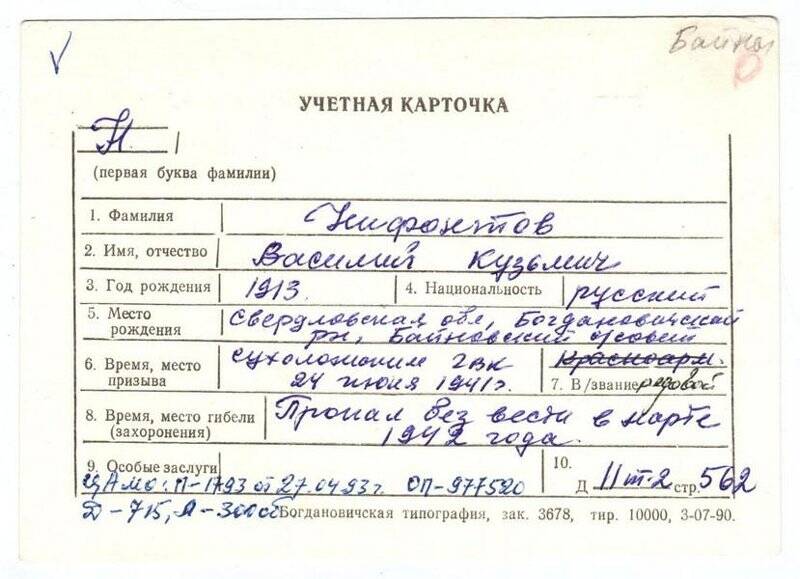 Байны
УЧЕТНАЯ КАРТОЧКА
Н.
(первая буква фамилии)
1. Фамилия Нифонтов
2. Имя, отчество Василий Кузьмич
3. Год рождения 1913. 4. Национальность русский
5. Место рождения Свердловская обл., Богдановичский
рн, Байновский
6. Время, место призыва Сухоложским ГВК
24 июня 1941г.
Красноарм.
7. В/звание рядовой
8. Время, место гибели (захоронения) Пропал без вести в марте
1942 года.
9. Особые заслуги
ЦАМО: П-1793 от 27.04.93г. ОП-977520
Д-715, Л-300об
10.
Д 11 т.2 стр. 562
Богдановичская типография, зак. 3678, тир. 10000, 3-07-90.